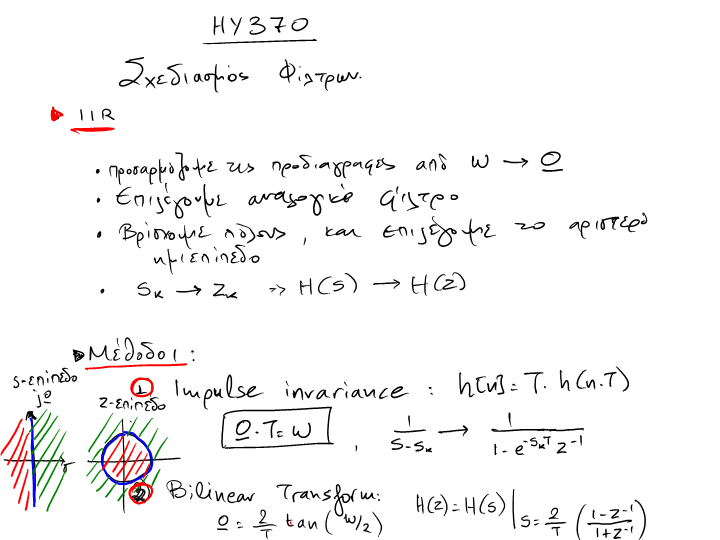 ΗΥ370
Σχεδιασμός Φίλτρων.
IIR
• Προσαρμόζουμε τις προδιαγραφές από ω → Ω
• Επιλέγουμε αναλογικό φίλτρο
• Βρίσκουμε πόλους, και επιλέγουμε το αριστερό
ημιεπίπεδο
• Sκ → Zκ => H(s) → H(z)
Μέθοδοι:
1 Impulse invariance: h[n] = T. h(n.T)
s-επίπεδο
jΩ
z-επίπεδο
Ω.T = ω , 1/(s-sκ) → 1/(1-e^{-sκT} z^{-1})
2 Bilinear Transform:
Ω = 2/T tan(ω/2) H(z) = H(s) | s = 2/T ((1-z^{-1})/(1+z^{-1}))